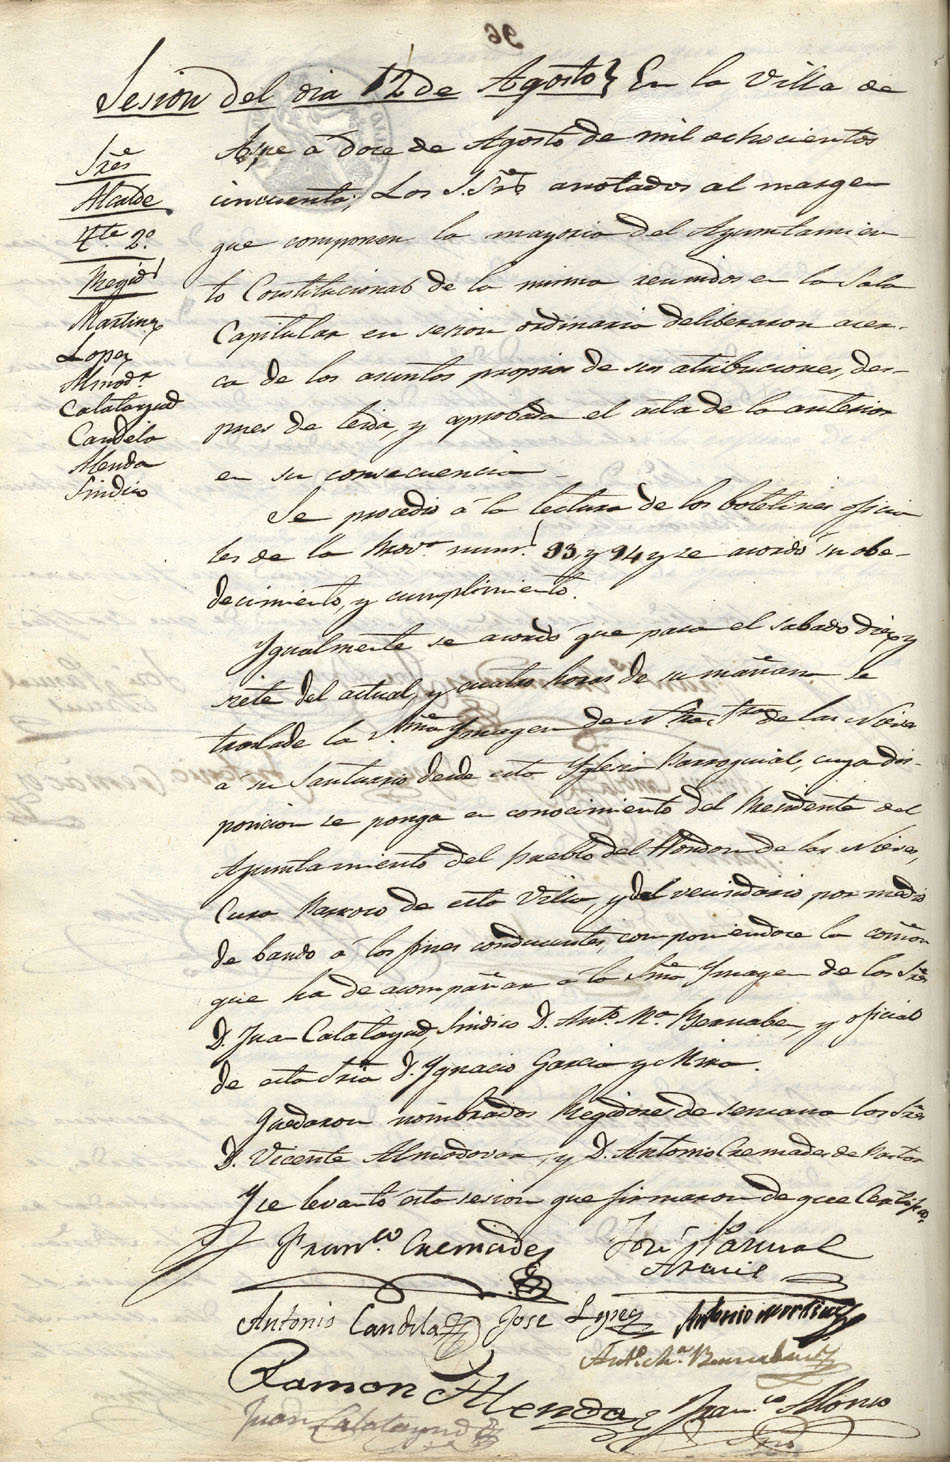 96
Sesion del dia 12 de Agosto} En la Villa de
Aspe á doce de Agosto de mil ochocientos
cincuenta; Los S.Sres anotados al margen
que componen la mayoria del Ayuntamien-
to Constitucional de la misma reunidos en la Sala
Capitular en sesion ordinaria deliberaron acer-
ca de los asuntos propios de sus atribuciones, des-
pues de leida, y aprobada el acta de la anterior
en su consecuencia
Sres
Alcalde
Tte 2º
Regids
Martinez
Lopez
Almodr
Calatayud
Candela
Alenda
Sindico
Se procedio á la lectura de los boletines oficia
les de la Prova nums 93, y 94 y se acordó su obe-
decimiento, y cumplimiento.
Igualmente se acordó que para el sabado diez y
siete del actual, y cuatro horas de su mañana se
traslade la Sma Ymagen de Ntra Sra de las Nieves
á su Santuario desde esta Yglesia Parroquial, cuya dis-
posicion se ponga en conocimiento del Presidente del
Ayuntamiento del pueblo del Hondon de las Nieves,
Cura Parroco de esta Villa, y del vecindario por medio
de bando á los fines conducentes, componiendose la comision
que ha de acompañar á la Sma Ymagen de los Sres
D. Juan Calatayud, Sindico D. Anto Ma Bernabeu, y oficial
de esta Sria D. Ygnacio Garcia y Mira.
Quedaron nombrados Regidores de semana los Sres
D. Vicente Almodovar, y D. Antonio Cremades de Pastor
Y se levantó esta sesion que firmaron de que Certifico.
Franco Cremades
José Pascual
Antonio Candela
José Lopez
Antonio Martinez
Anto Ma Bernabeu
Ramon Alenda
Juan Calatayud
Franco Alonso
Srio